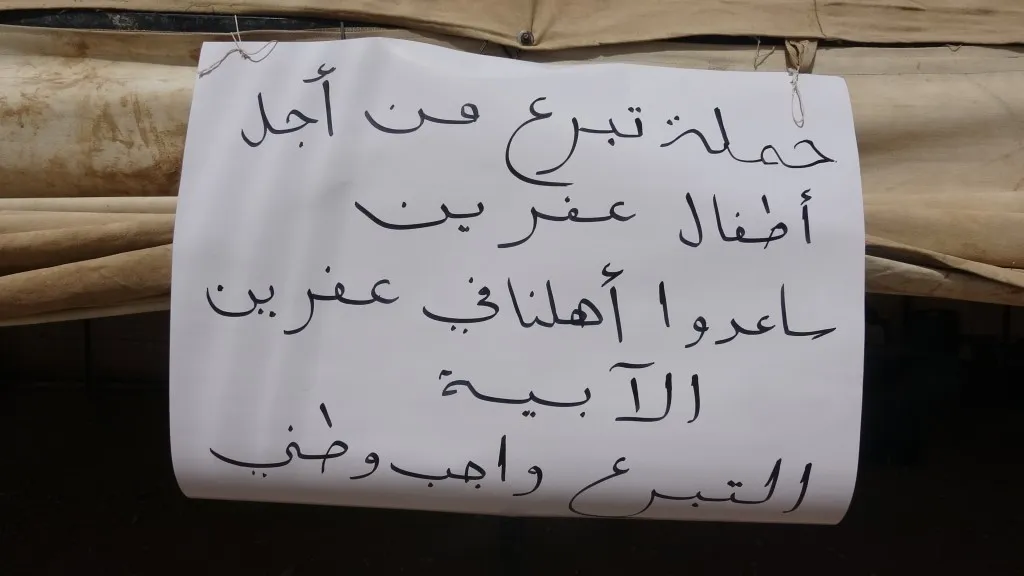 حملة تبرع من أجل
أطفال عفرين
ساعدوا أهلنا في عفرين
الآبية
التبرع واجب وطني